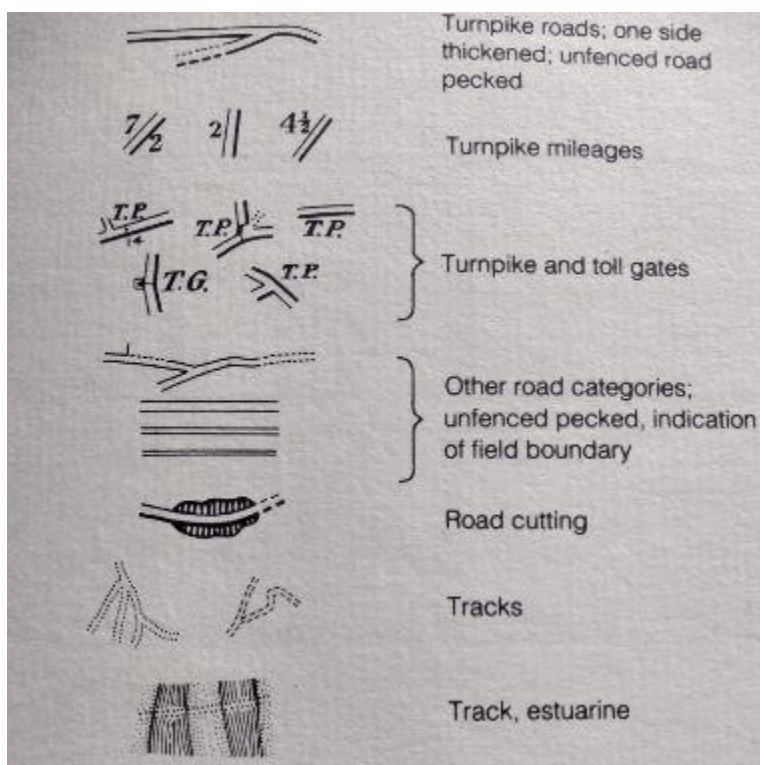 Turnpike roads; one side
thickened; unfenced road
pecked
7/2 2 4½
Turnpike mileages
T.P. T.P. T.P.
T.G. T.P.
Turnpike and toll gates
Other road categories;
unfenced pecked, indication
of field boundary
Road cutting
Tracks
Track, estuarine